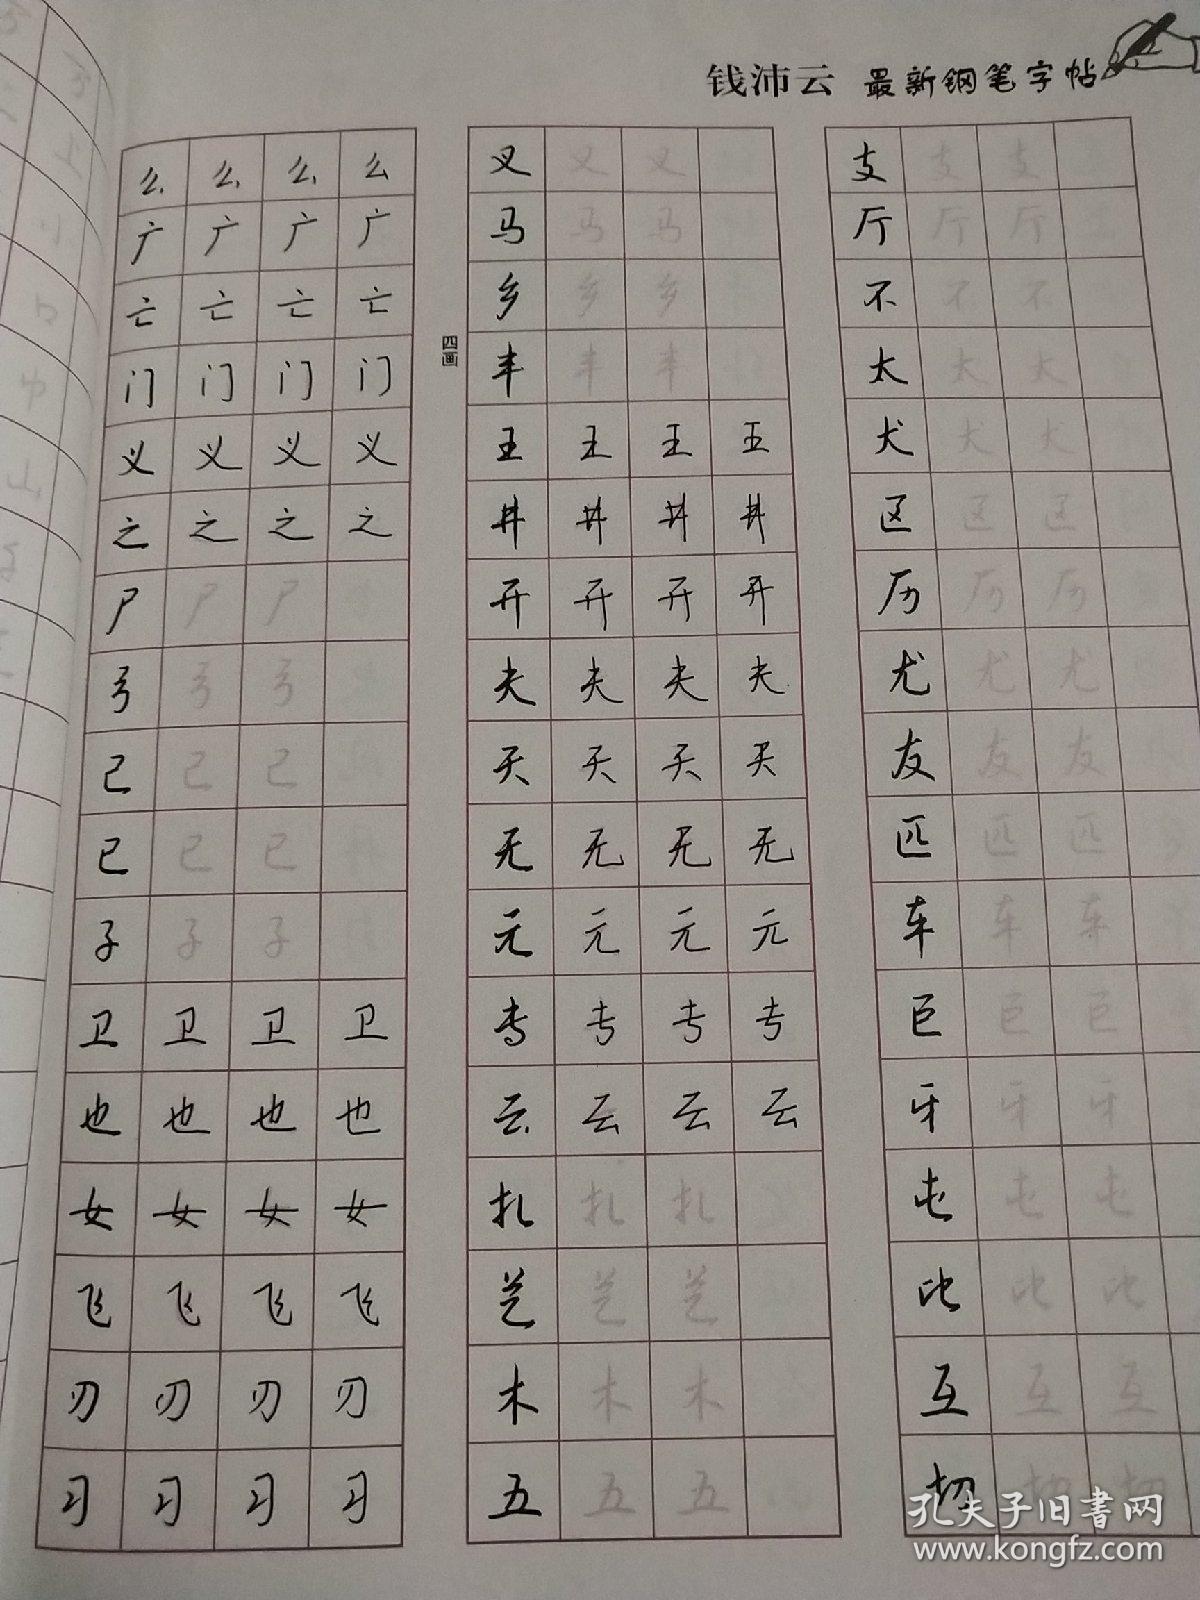 钱沛云 最新钢笔字帖
么 么 么 么
广 广 广 广
亡 亡 亡 亡
门 门 门 门
义 义 义 义
之 之 之 之
尸 尸 尸
弓 弓 弓
己 己 己
已 已 已
子 子 子
卫 卫 卫 卫
也 也 也 也
女 女 女 女
飞 飞 飞 飞
刃 刃 刃 刃
习 习 习 习
叉 叉 叉
马 马 马
乡 乡 乡
四画
丰 丰 丰
王 王 王 王
井 井 井 井
开 开 开 开
夫 夫 夫 夫
天 天 天 天
无 无 无 无
元 元 元 元
专 专 专 专
云 云 云 云
扎 扎 扎
艺 艺 艺
木 木 木
五 五 五
支 支 支
厅 厅 厅
不 不 不
太 太 太
犬 犬 犬
区 区 区
历 历 历
尤 尤 尤
友 友 友
匹 匹 匹
车 车 车
巨 巨 巨
牙 牙 牙
屯 屯 屯
比 比 比
互 互 互
切 切 切
孔夫子旧书网
www.kongfz.com